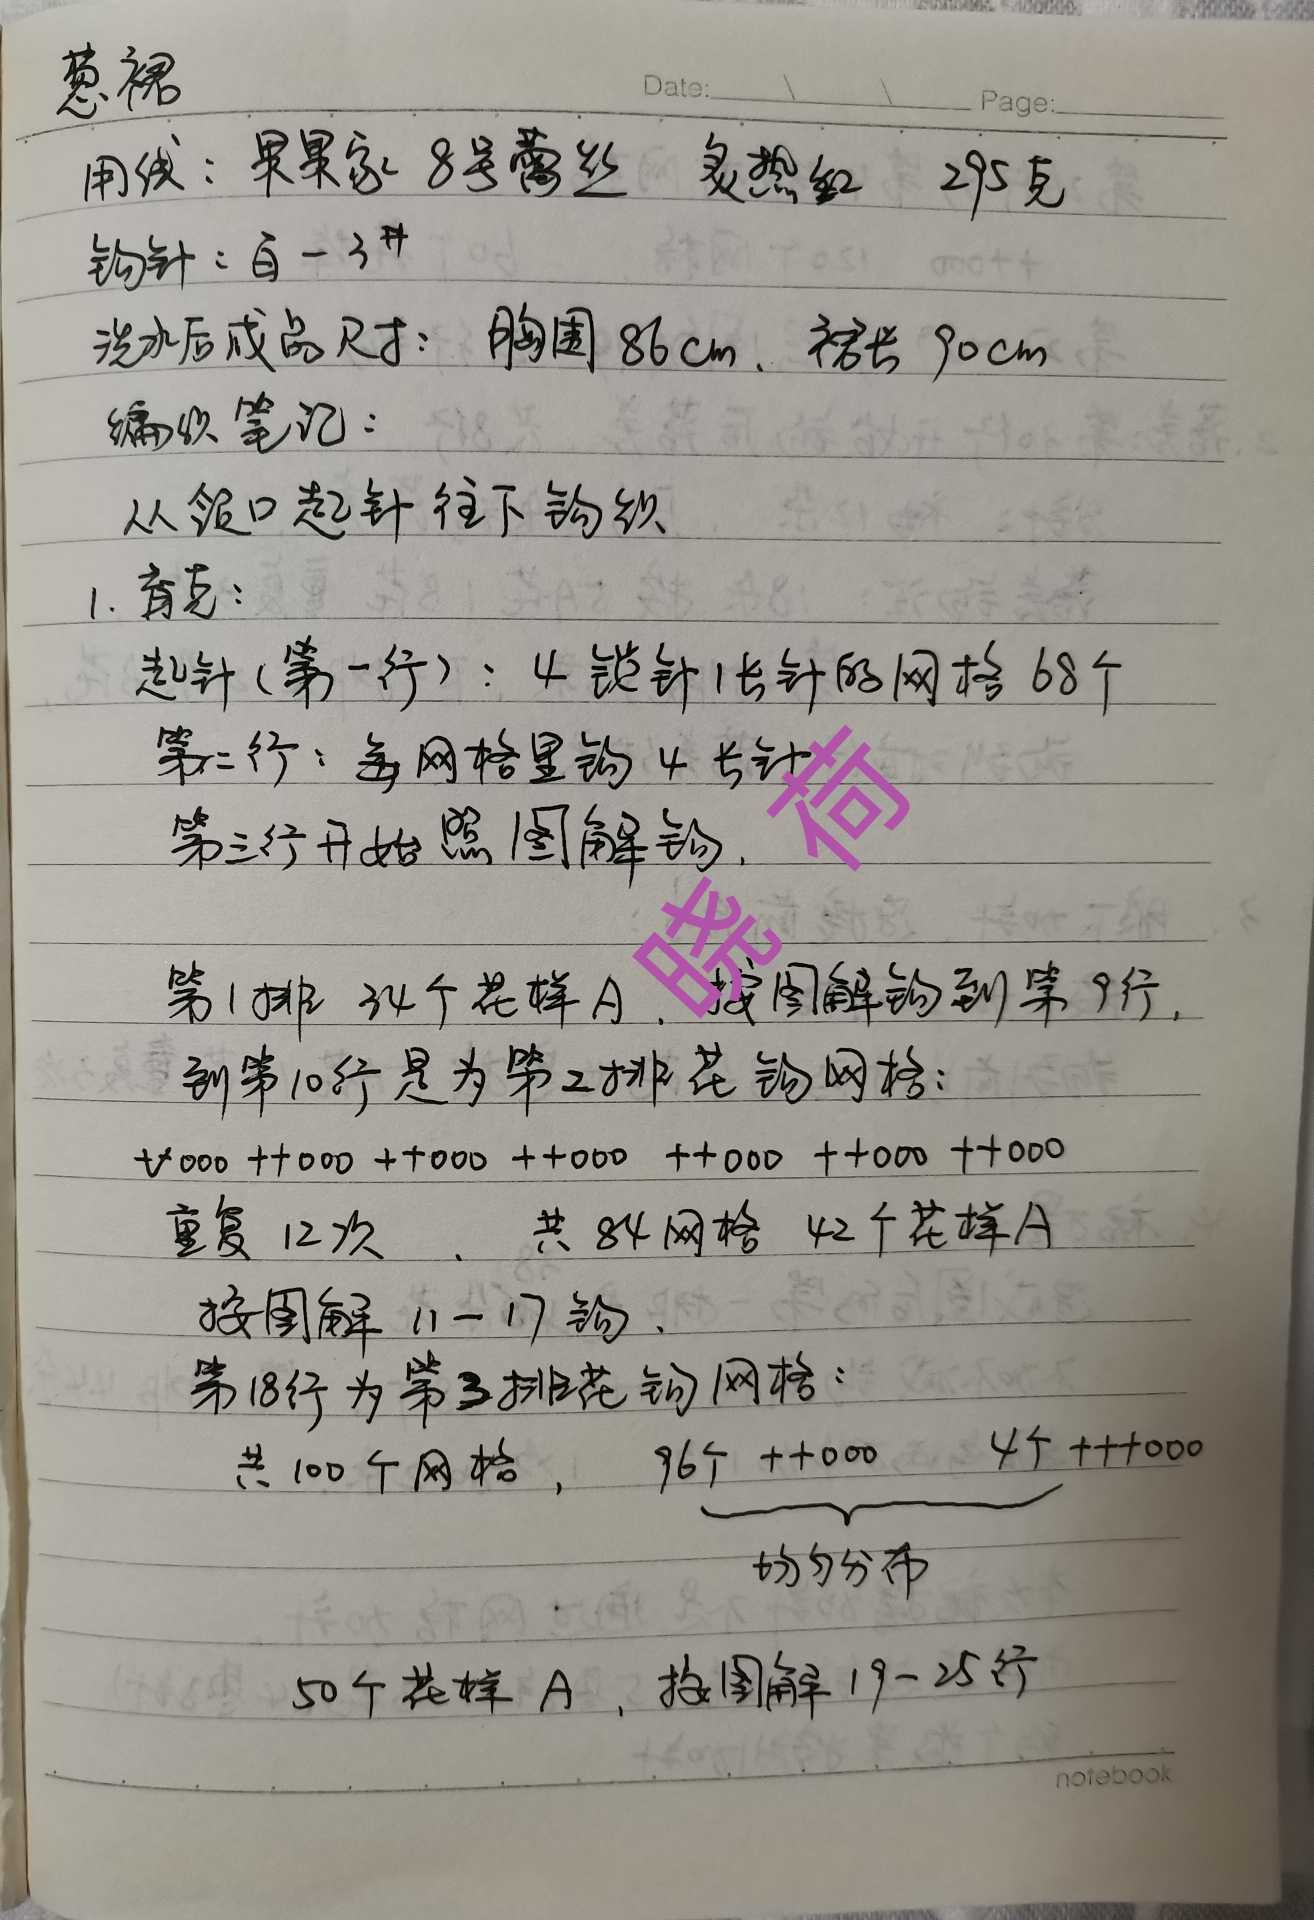 葱裙
Date: \ \ Page:
用线：果果家 8号蕾丝 炙热红 295克
钩针：白一3#
洗水后成品尺寸：胸围86cm、裙长90cm
编织笔记：
从领口起针往下钩织
1. 育克：
起针（第一行）：4锁针1长针的网格68个
第二行：每网格里钩4长针
第三行开始照图解钩，
第1排 34个花样A，按图解钩到第9行，
到第10行是为第2排花钩网格：
++000 ++000 ++000 ++000 ++000 ++000 ++000
重复12次 、共84网格 42个花样A
按图解11-17钩、
第18行为第3排花钩网格：
共100个网格， 96个++000 4个+++000
均匀分布
50个花样A，按图解19-25行
notebook
晓荷